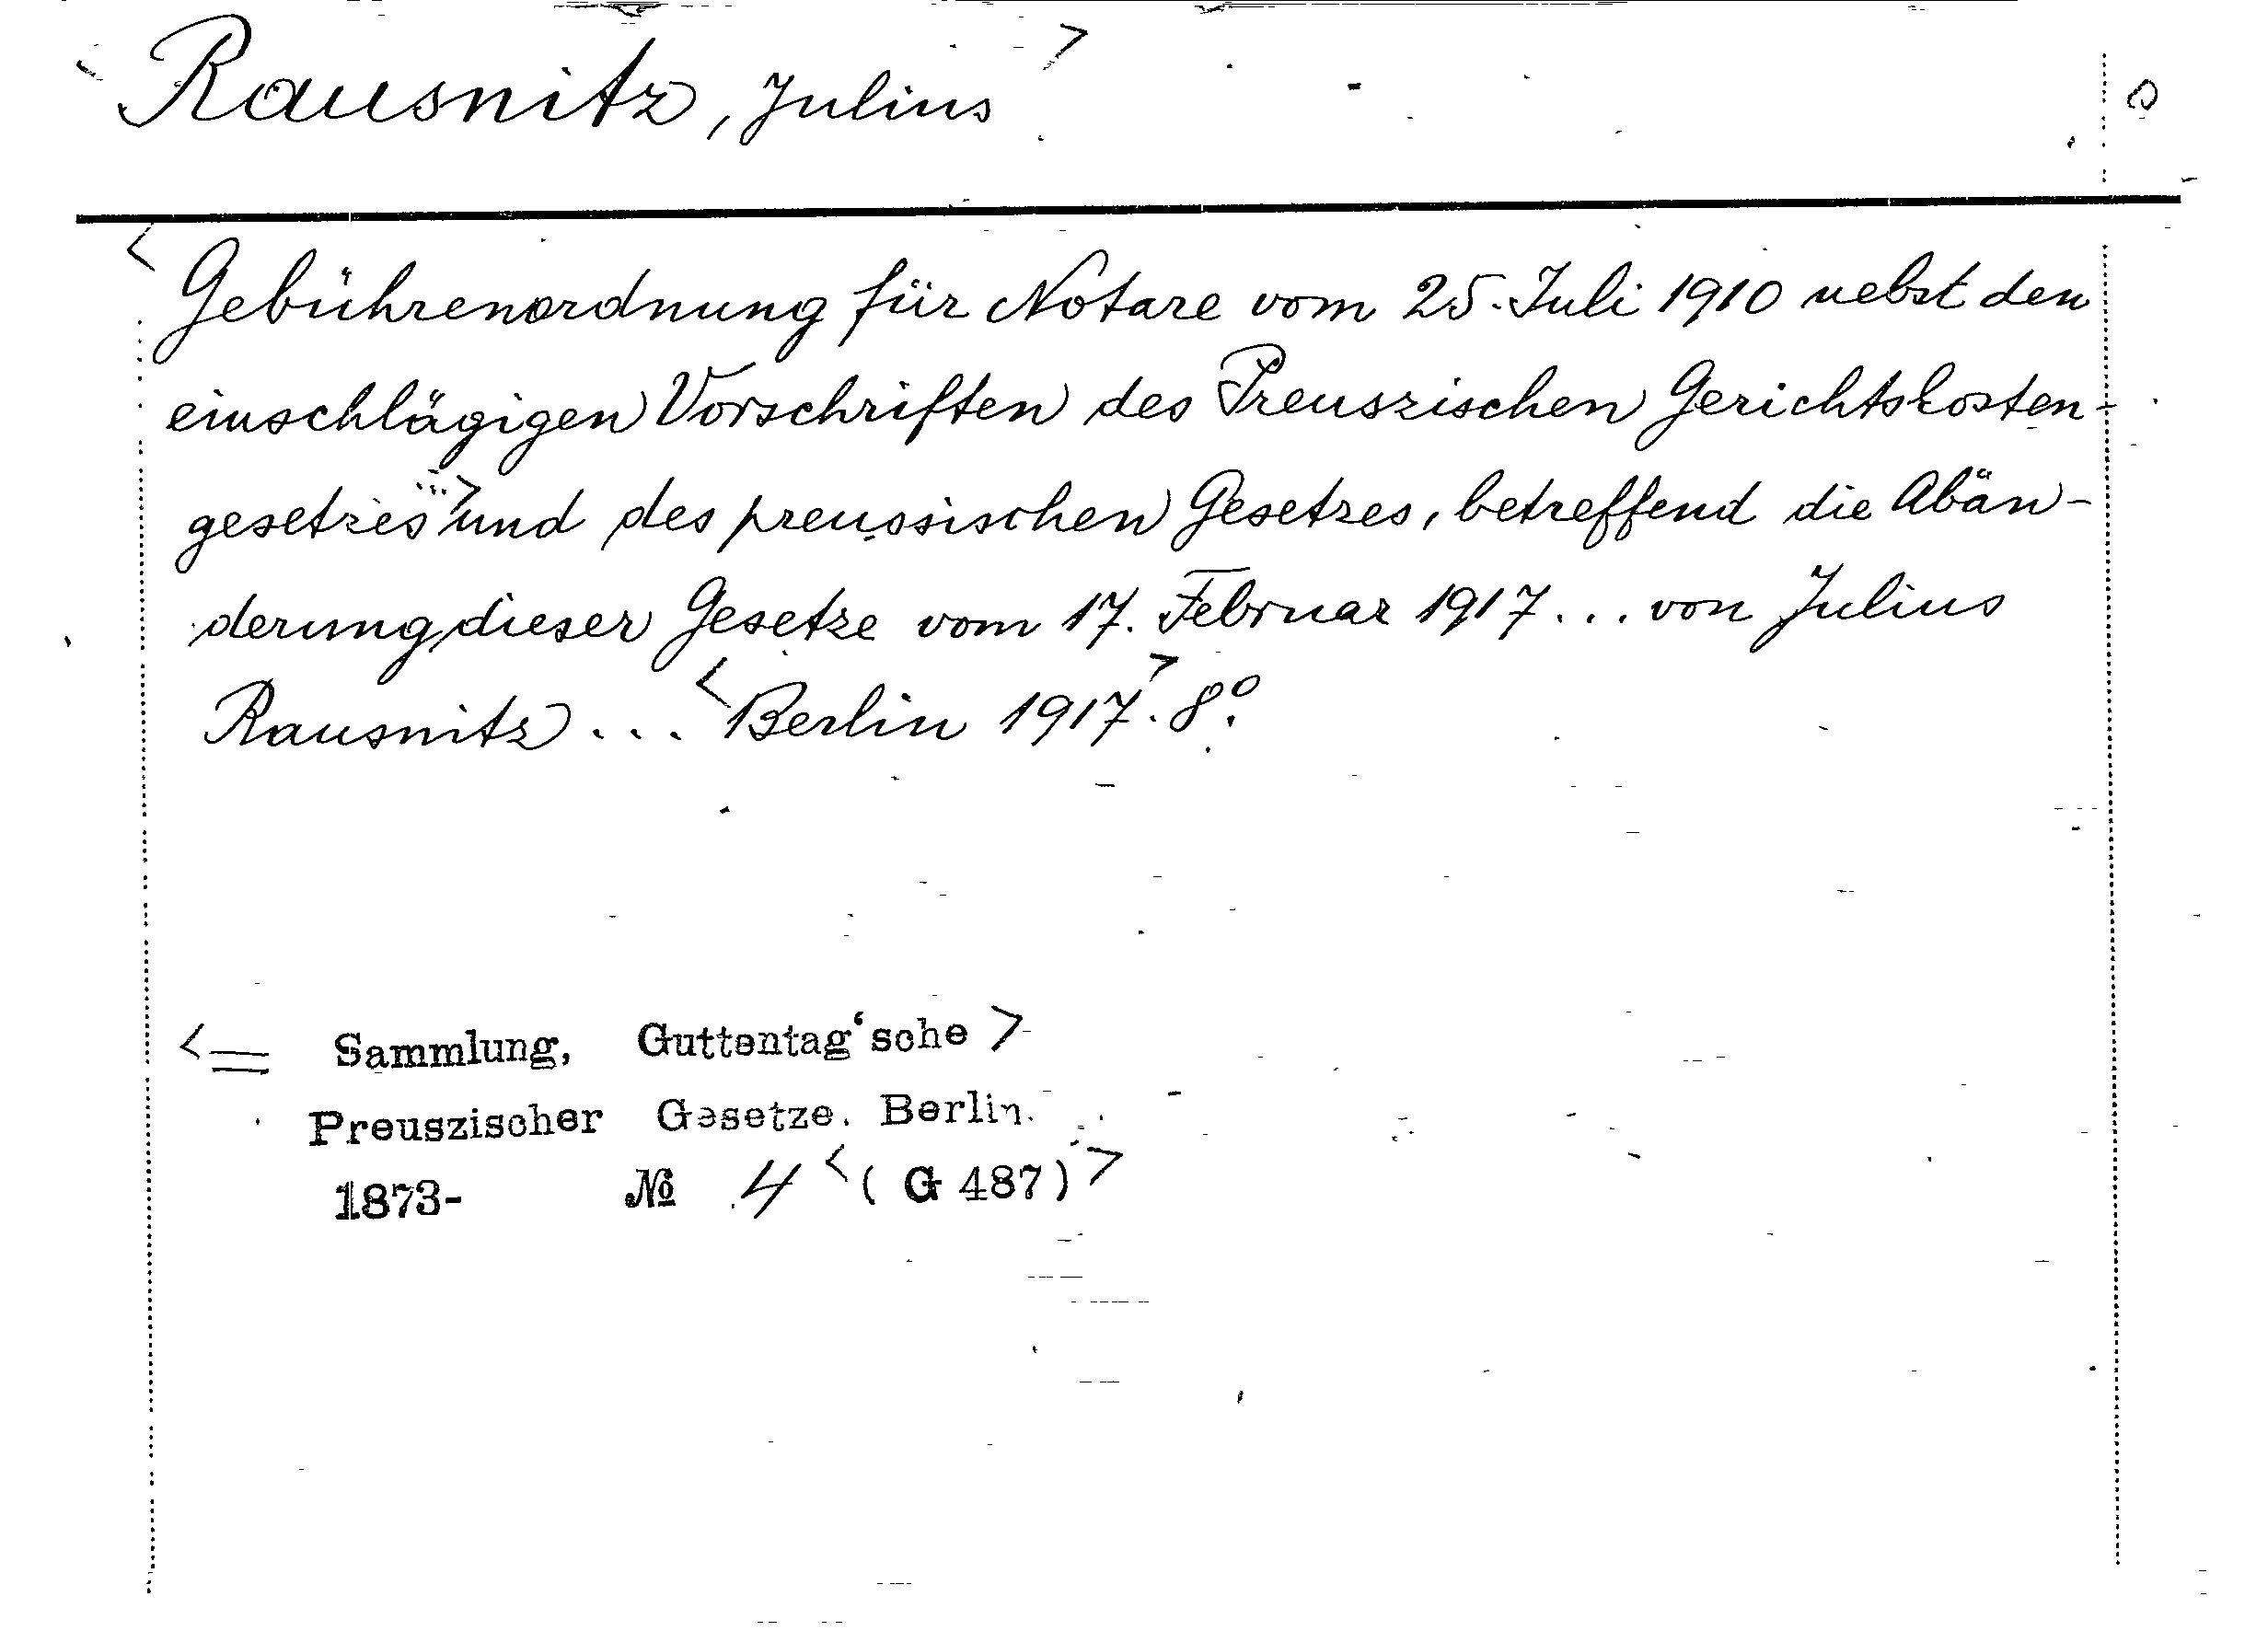 < Rausnitz, Julius >
< Gebührenordnung für Notare vom 25. Juli 1910 nebst den
einschlägigen Vorschriften des Preuszischen Gerichtskosten-
gesetzes ...> und des preussischen Gesetzes, betreffend die Abän-
derung dieser Gesetze vom 17. Februar 1917 ... von Julius
Rausnitz ... < Berlin 1917 >. 8º.
< = Sammlung, Guttentag'sche >
Preuszischer Gesetze. Berlin.
1873- № 4 < ( G 487 ) >